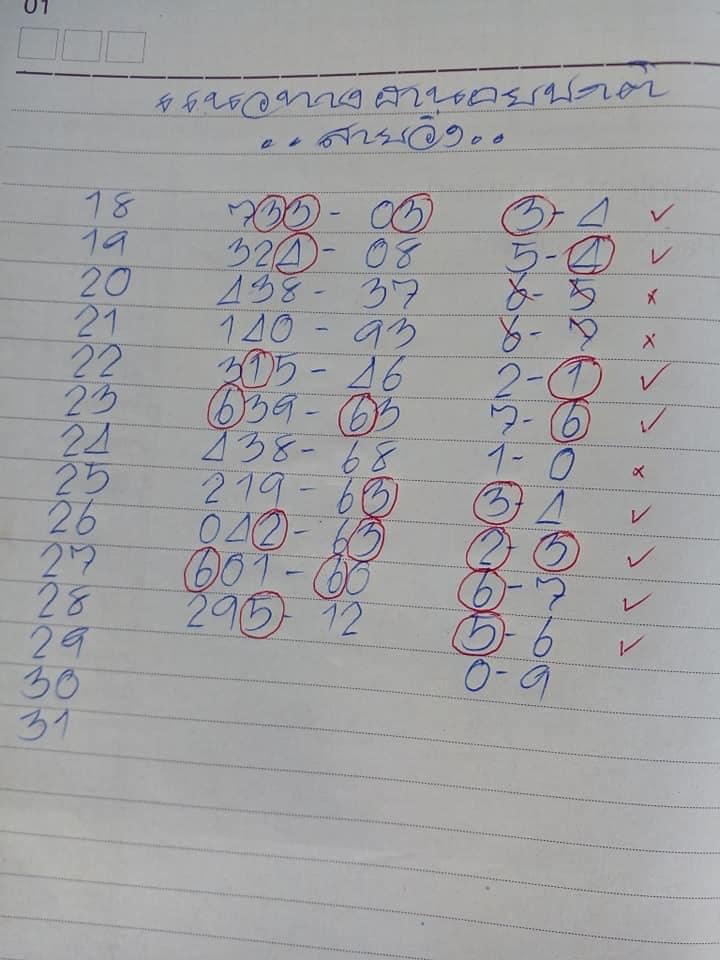 01
แนวทางฮานอยปกติ
..สายวิ่ง..
18 733 - 03 3-4 ✓
19 324 - 08 5-4 ✓
20 438 - 37 6-5 ×
21 140 - 93 6-7 ×
22 315 - 46 2-1 ✓
23 639 - 63 7-6 ✓
24 438 - 68 1-0 ×
25 219 - 63 3-4 ✓
26 042 - 63 2-3 ✓
27 601 - 60 6-7 ✓
28 295 - 12 5-6 ✓
29 0-9
30
31